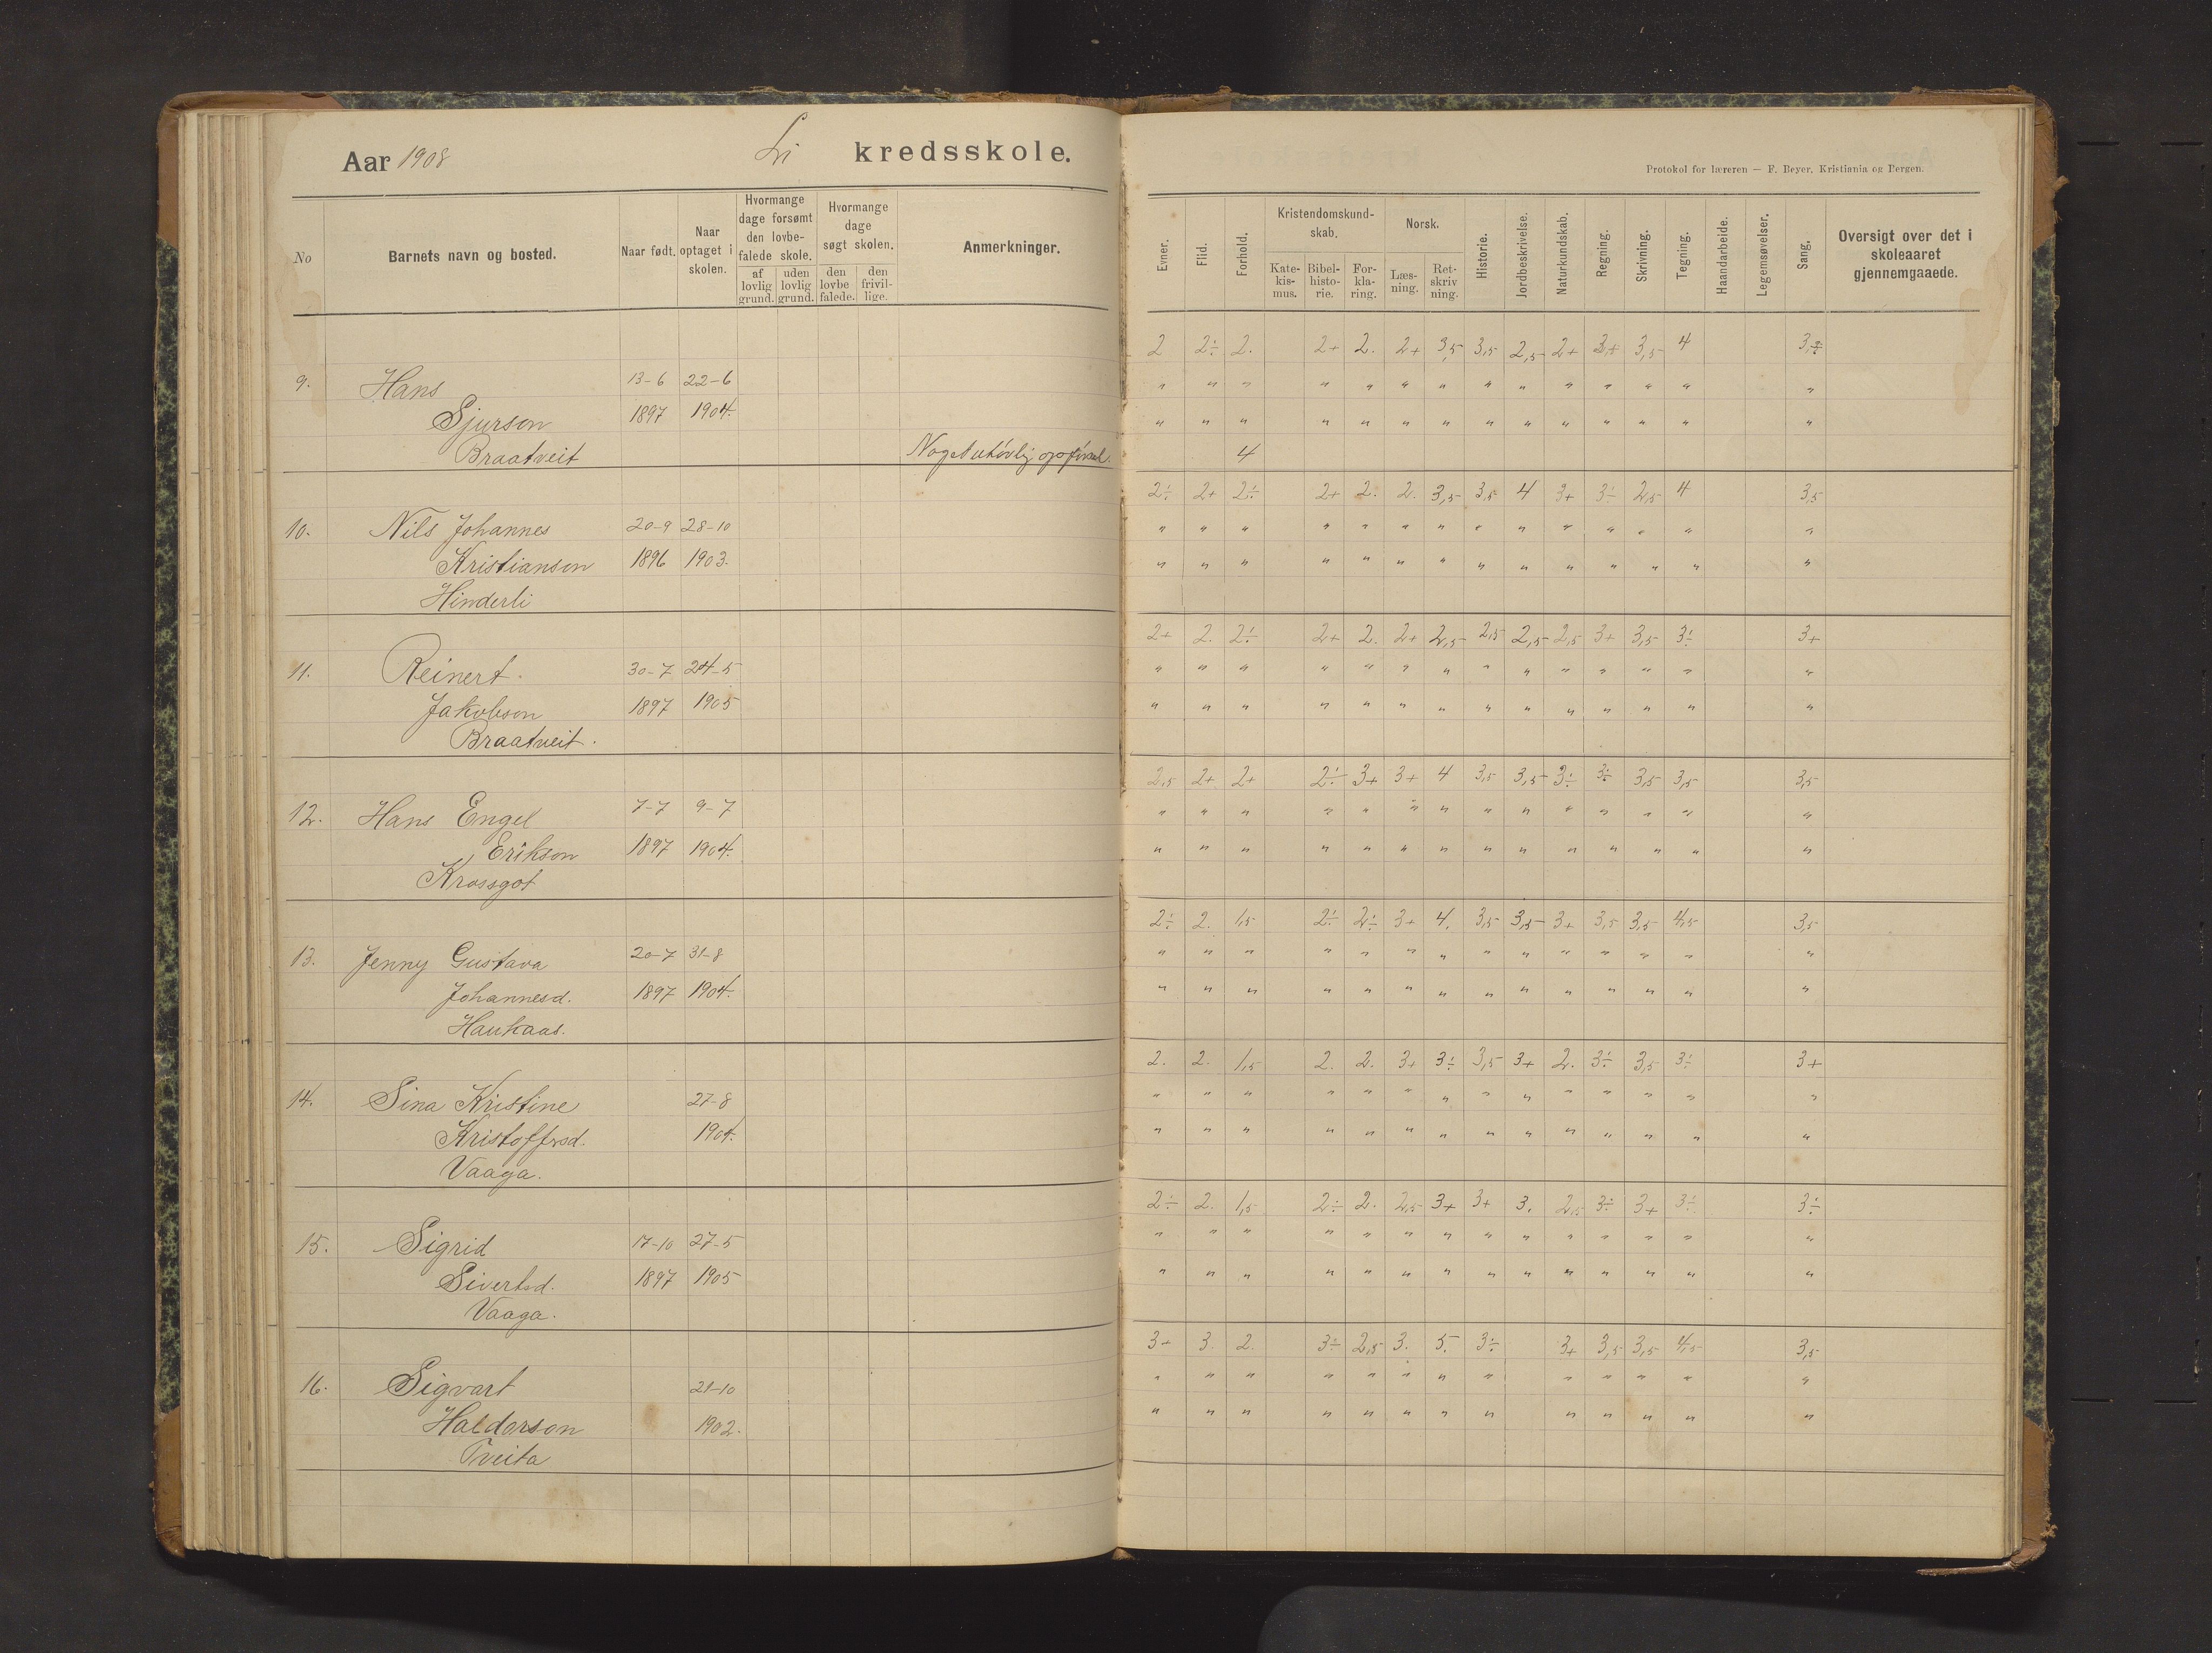 Aar 1908 Li kredsskole.
Protokol for læreren — F. Beyer, Kristiania og Bergen.
No Barnets navn og bosted. Naar født. Naar optaget i skolen. Hvormange dage forsømt den lovbefalede skole. af lovlig grund. uden lovlig grund. Hvormange dage søgt skolen. den lovbefalede. den frivillige. Anmerkninger.
Evner. Flid. Forhold. Kristendomskundskab. Katekismus. Bibelhistorie. Forklaring. Norsk. Læsning. Retskrivning. Historie. Jordbeskrivelse. Naturkundskab. Regning. Skrivning. Tegning. Haandarbeide. Legemsøvelser. Sang. Oversigt over det i skoleaaret gjennemgaaede.
2 2÷ 2. 2+ 2. 2+ 3,5 3,5 2,5 2+ 3+ 3,5 4
9. Hans 13-6 22-6 " " " " " " " " " " " " " "
Sjurson 1897 1904. " " " " " " " " " " " " " "
Braatveit Noget utøvlig opførsel. 4
2÷ 2+ 2÷ 2+ 2. 2. 3,5 3,5 4 3+ 3÷ 2,5 4 3,5
10. Nils Johannes 20-9 28-10 " " " " " " " " " " " " " "
Kristianson 1896 1903. " " " " " " " " " " " " " "
Hinderli
2+ 2. 2÷ 2+ 2. 2+ 2,5 2,5 2,5 2,5 3+ 3,5 3÷ 3+
11. Reinert. 30-7 24-5 " " " " " " " " " " " " " "
Jakobson 1897 1905 " " " " " " " " " " " " " "
Braatveit.
2,5 2+ 2+ 2÷ 3+ 3+ 4 3,5 3,5 3÷ 3÷ 3,5 3,5 3,5
12. Hans Engel 7-7 9-7 " " " " " " " " " " " " " "
Erikson 1897 1904. " " " " " " " " " " " " " "
Krossgot
2÷ 2. 1,5 2÷ 2÷ 3+ 4. 3,5 3,5 3+ 3,5 3,5 4,5 3,5
13. Jenny Gustava 20-7 31-8 " " " " " " " " " " " " " "
Johannesd. 1897 1904. " " " " " " " " " " " " " "
Haukaas.
2. 2. 1,5 2. 2. 3+ 3÷ 3,5 3+ 2. 3÷ 3,5 3÷ 3+
14. Sina Kristine 27-8 " " " " " " " " " " " " " "
Kristoffersd. 1904. " " " " " " " " " " " " " "
Vaaga.
2÷ 2. 1,5 2÷ 2. 2,5 3+ 3+ 3. 2,5 3÷ 3+ 3÷ 3÷
15. Sigrid 17-10 27-5 " " " " " " " " " " " " " "
Sivertsd. 1897 1905 " " " " " " " " " " " " " "
Vaaga.
3+ 3. 2. 3÷ 2,5 3. 5. 3÷ 3+ 3,5 3,5 4,5 3,5
16. Sigvart 21-10 " " " " " " " " " " " " "
Haldorson 1902. " " " " " " " " " " " " "
Tveita